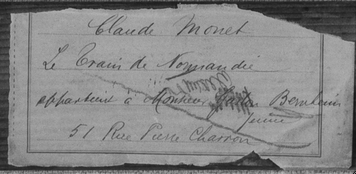 Claude Monet
Le Train de Normandie
appartient à Monsieur Bernheim
Jeune
51 Rue Pierre Charron